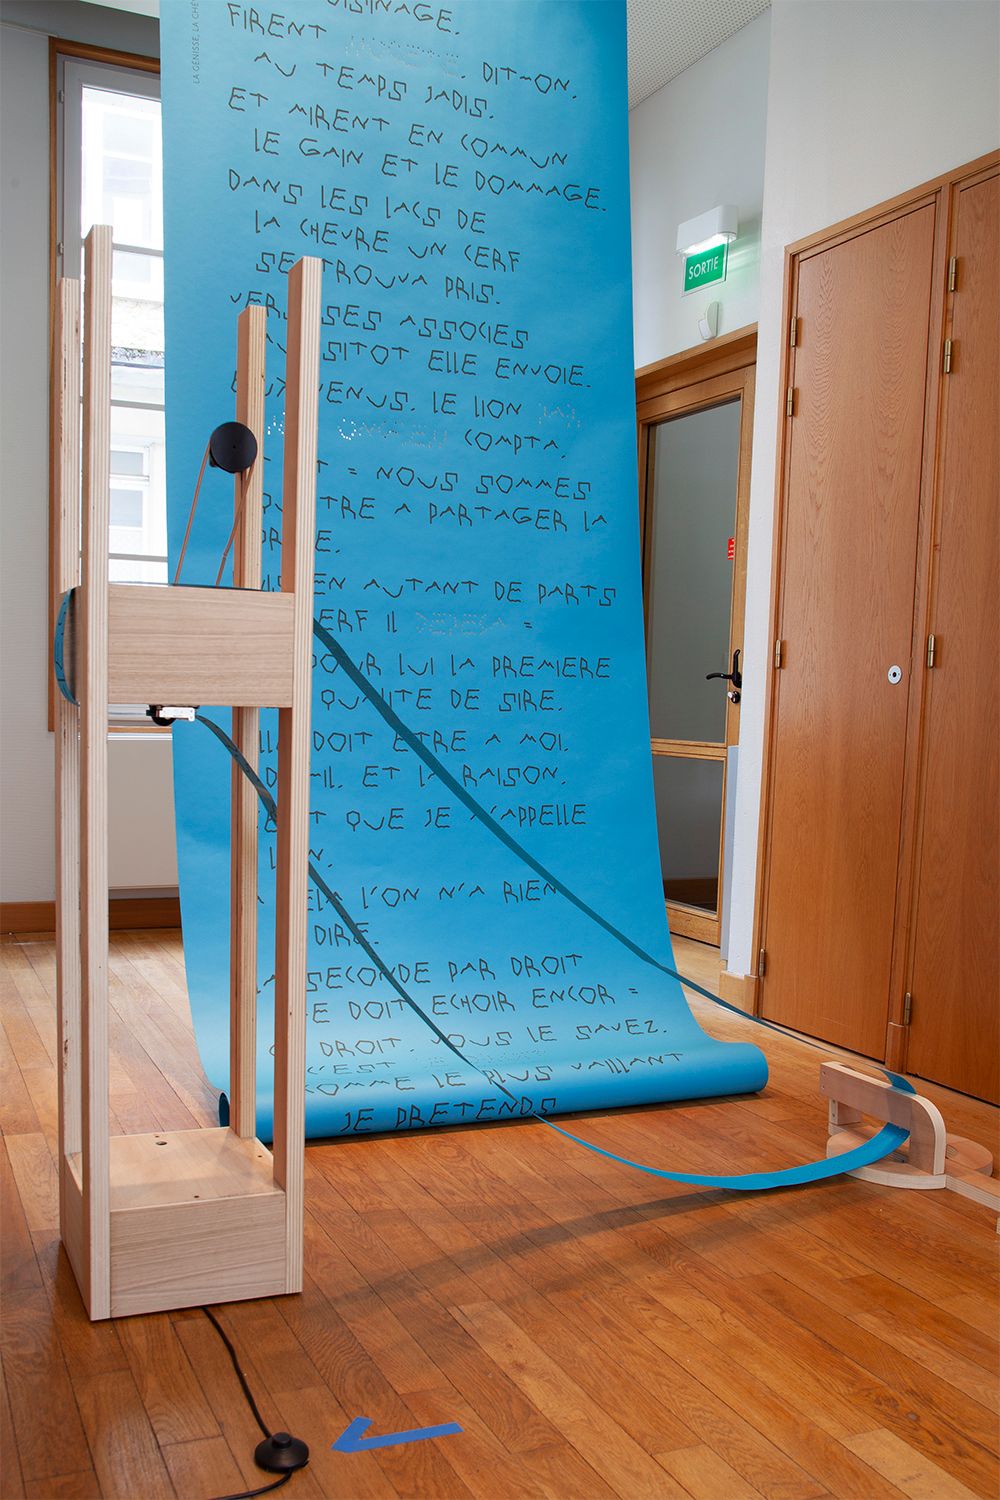 LA GÉNISSE, LA
FIRENT DIT-ON,
AU TEMPS JADIS.
ET MIRENT EN COMMUN
LE GAIN ET LE DOMMAGE.
DANS LES LACS DE
LA CHEVRE UN CERF
SE TROUVA PRIS.
VERS SES ASSOCIES
SITOT ELLE ENVOIE.
VENUS. LE LION
COMPTA.
= NOUS SOMMES
A PARTAGER LA
EN AUTANT DE PARTS
IL =
POUR LUI LA PREMIERE
DE SIRE.
DOIT ETRE A MOI.
ET LA RAISON.
QUE JE M'APPELLE
L'ON N'A RIEN
DIRE.
SECONDE PAR DROIT
DOIT ECHOIR ENCOR =
DROIT. VOUS LE SAVEZ.
C'EST
COMME LE PLUS VAILLANT
JE PRETENDS
SORTIE